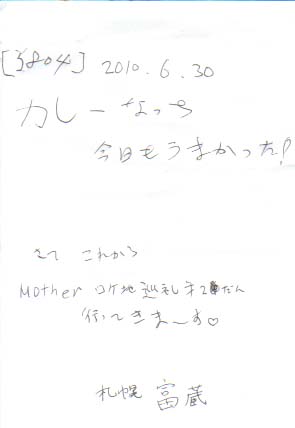 [3804] 2010.6.30
カレーなっち
今日もうまかった!
さて これから
Mother ロケ地巡礼才2だん
行ってきま〜す♡
札幌 富蔵